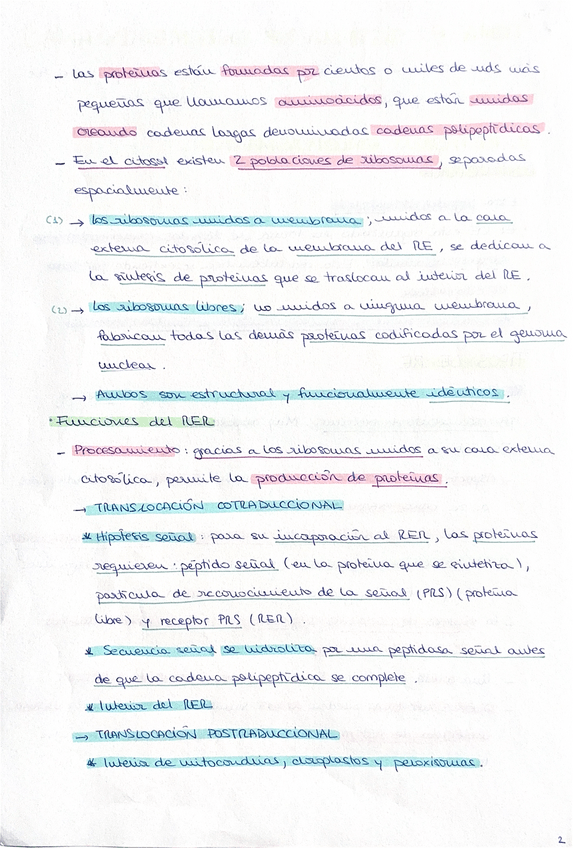 - Las proteínas están formadas por cientos o miles de uds más
pequeñas que llamamos aminoácidos, que están unidas
creando cadenas largas denominadas cadenas polipeptídicas.
- En el citosol existen 2 poblaciones de ribosomas, separadas
espacialmente:
(1) → los ribosomas unidos a membrana; unidos a la cara
externa citosólica de la membrana del RE, se dedican a
la síntesis de proteínas que se traslocan al interior del RE.
(2) → Los ribosomas libres; no unidos a ninguna membrana,
fabrican todas las demás proteínas codificadas por el genoma
nuclear.
→ Ambos son estructural y funcionalmente idénticos.
· Funciones del RER
- Procesamiento: gracias a los ribosomas unidos a su cara externa
citosólica, permite la producción de proteínas.
→ TRANSLOCACIÓN COTRADUCCIONAL
* Hipótesis señal: para su incorporación al RER, las proteínas
requieren: péptido señal (en la proteína que se sintetiza),
partícula de reconocimiento de la señal (PRS) (proteína
libre) y receptor PRS (RER).
* Secuencia señal se hidroliza por una peptidasa señal antes
de que la cadena polipeptídica se complete.
* Interior del RER
→ TRANSLOCACIÓN POSTRADUCCIONAL
* Interior de mitocondrias, cloroplastos y peroxisomas.
2